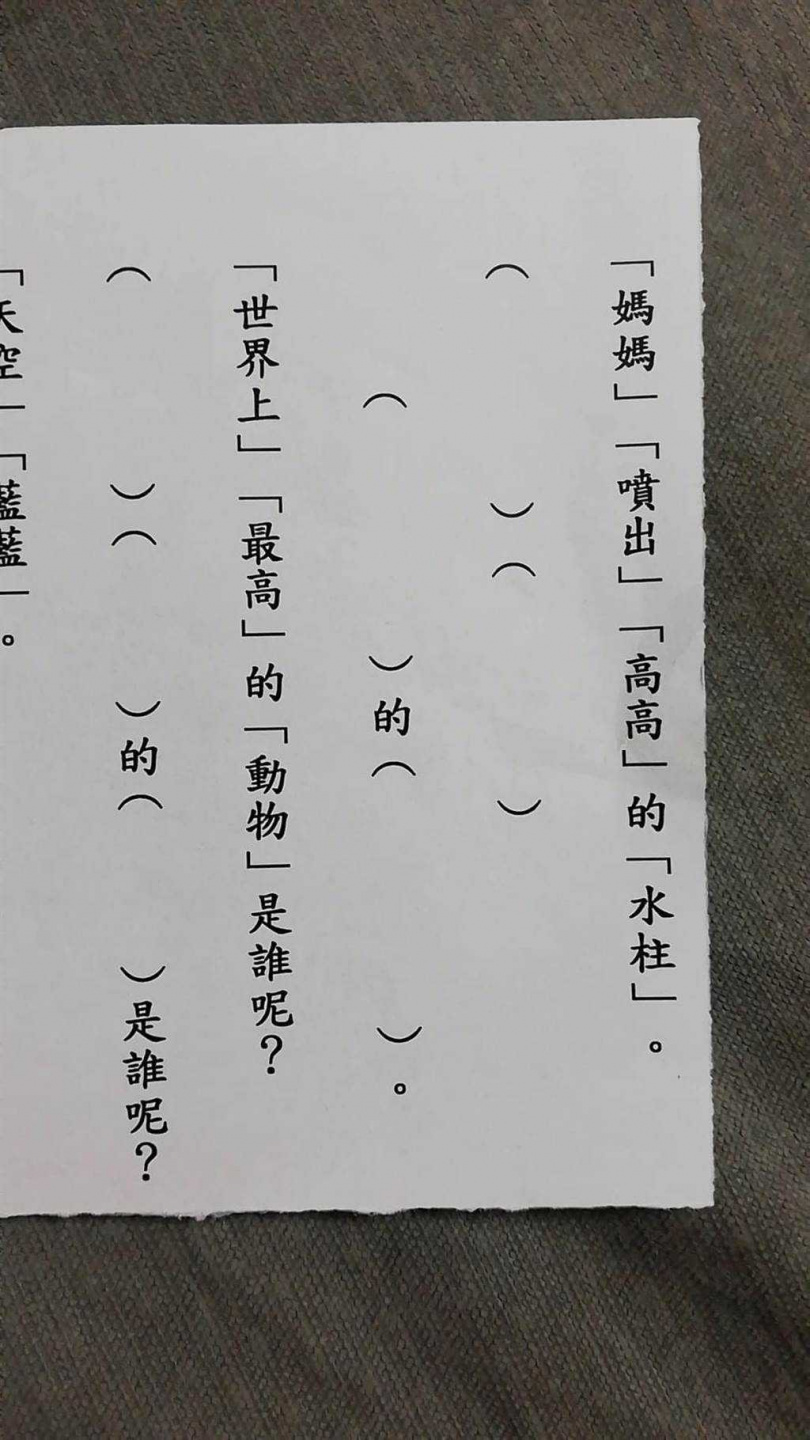 「媽媽」「噴出」「高高」的「水柱」。
（　　　　）（　　　　）
（　　　　）的（　　　　）。
「世界上」「最高」的「動物」是誰呢？
（　　　　）（　　　　）的（　　　　）是誰呢？
「天空」「藍藍」。